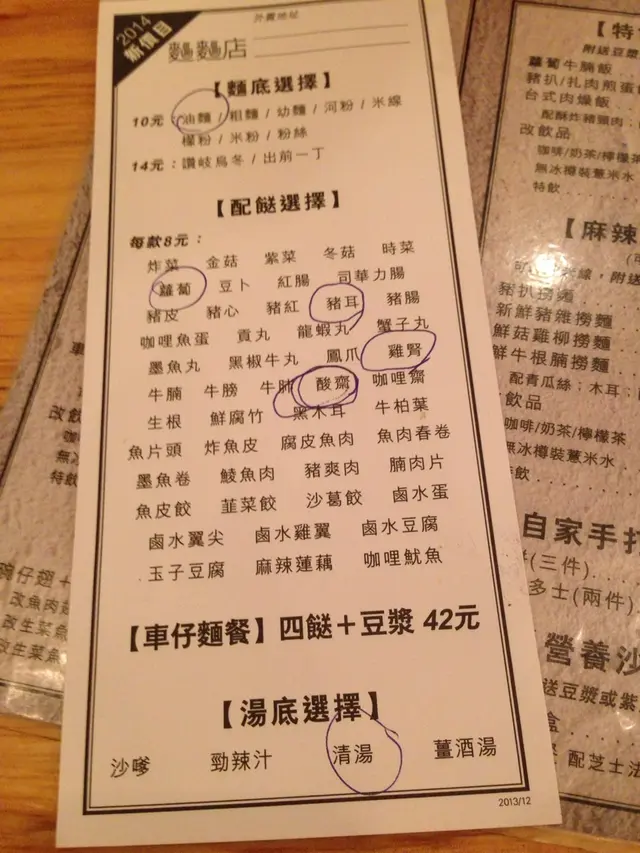 2014
新價目
外賣地址
麵麵店
【麵底選擇】
10元：油麵 / 粗麵 / 幼麵 / 河粉 / 米線
檬粉 / 米粉 / 粉絲
14元：讚岐烏冬 / 出前一丁
【配餸選擇】
每款8元：
炸菜 金菇 紫菜 冬菇 時菜
蘿蔔 豆卜 紅腸 司華力腸
豬皮 豬心 豬紅 豬耳 豬腸
咖哩魚蛋 貢丸 龍蝦丸 蟹子丸
墨魚丸 黑椒牛丸 鳳爪 雞腎
牛腩 牛膀 牛肺 酸齋 咖哩齋
生根 鮮腐竹 黑木耳 牛柏葉
魚片頭 炸魚皮 腐皮魚肉 魚肉春卷
墨魚卷 鯪魚肉 豬爽肉 腩肉片
魚皮餃 韮菜餃 沙葛餃 鹵水蛋
鹵水翼尖 鹵水雞翼 鹵水豆腐
玉子豆腐 麻辣蓮藕 咖哩魷魚
【車仔麵餐】四餸＋豆漿 42元
【湯底選擇】
沙嗲 勁辣汁 清湯 薑酒湯
2013/12
【特
附送豆漿
蘿蔔牛腩飯
豬扒/扎肉煎蛋
台式肉燥飯
配酥炸豬頸肉；
改飲品
咖啡/奶茶/檸檬茶
無冰樽裝薏米水
特飲
【麻辣
線，附送
豬扒撈麵
新鮮豬雜撈麵
鮮菇雞柳撈麵
鮮牛根腩撈麵
配青瓜絲；木耳；
飲品
咖啡/奶茶/檸檬茶
無冰樽裝薏米水
自家手打
(三件)
多士(兩件)
營養沙
送豆漿或紫
盒
配芝士
改飲
咖
無
特飲
碗仔翅＋
改魚肉
改生菜魚
改生菜魚